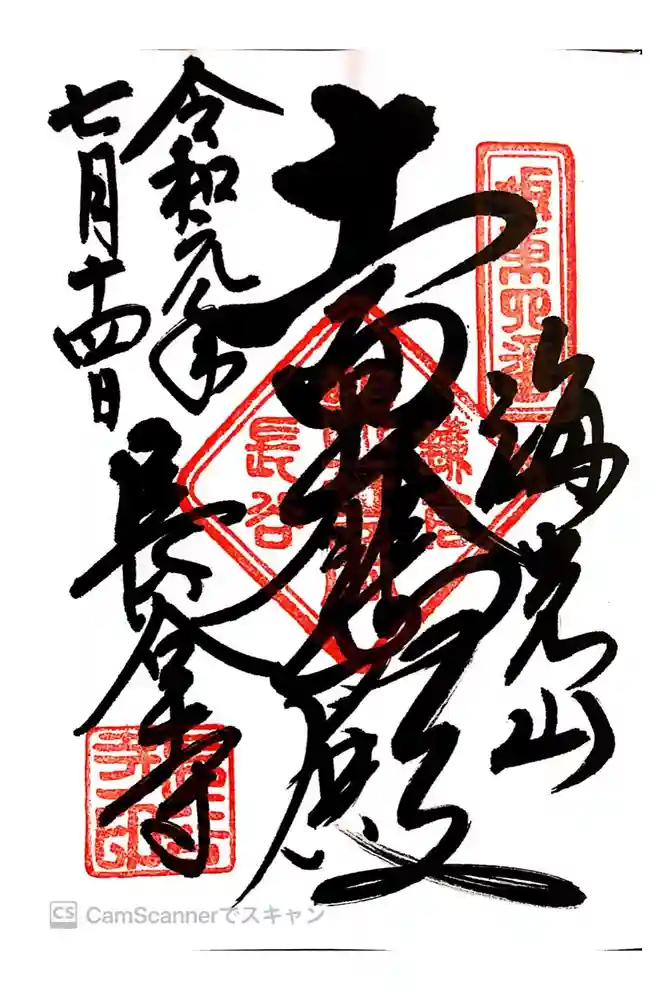 坂東四番
海光山
十一面大悲殿
鎌倉
長谷
長谷寺
令和元年
七月十四日
CamScannerでスキャン